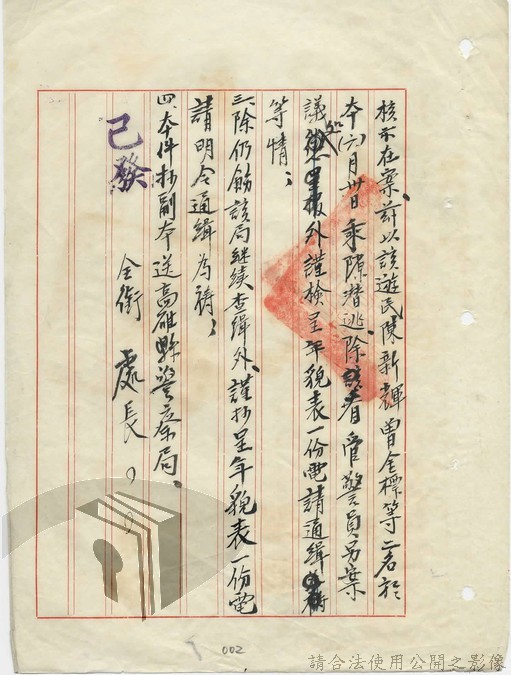 核示在案茲以該遊民陳新輝曾金標等二名於
本(六)月卅日乘隙潛逃、除該看管警員另案
議處外謹檢呈年貌表一份電請通緝
等情；
三、除仍飭該局繼續查緝外、謹抄呈年貌表一份電
請明令通緝為禱；
四、本件抄副本送高雄縣警察局、
全銜 處長
已發
002
請合法使用公開之影像